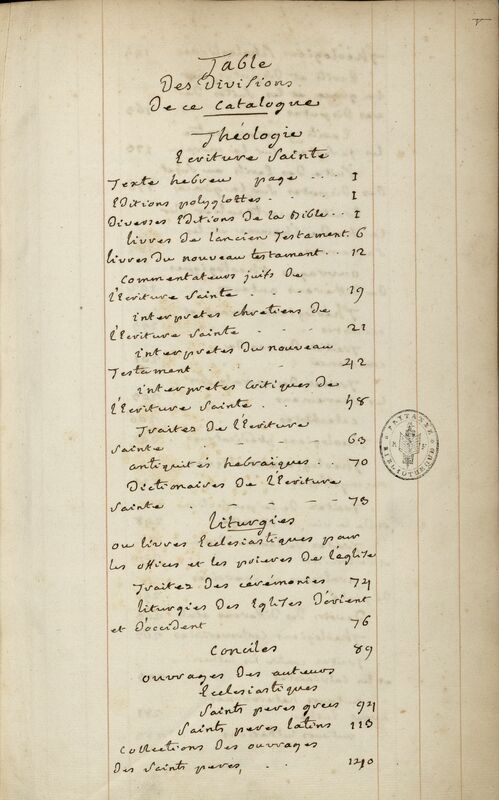 Table
Des Divisions
De ce catalogue
Théologie
Ecriture Sainte
Texte hebreu page . . . 1
Editions polyglottes . . 1
Diverses Editions de la Bible . . 1
livres de l'ancien Testament. 6
livres du nouveau testament . . 12
commentateurs juifs de
l'Ecriture Sainte . . . 19
interpretes chretiens de
l'Ecriture Sainte . . . 21
interpretes du nouveau
Testament . . . 42
interpretes critiques de
l'Ecriture Sainte . . 48
Traitez de l'Ecriture
Sainte . . . 63
antiquités hebraiques . . 70
Dictionaires de l'Ecriture
Sainte - - - - 73
liturgies
ou livres Ecclesiastiques pour
les offices et les prieres de l'église
Traitez des cérémonies 74
liturgies des Eglises d'orient
et d'occident 76
conciles 89
ouvrages des auteurs
Ecclesiastiques
Saints peres grecs 94
Saints peres latins 113
collections des ouvrages
des saints peres, . . 140